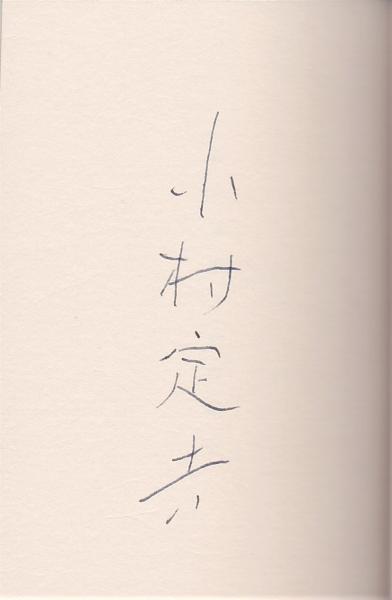 小村定吉